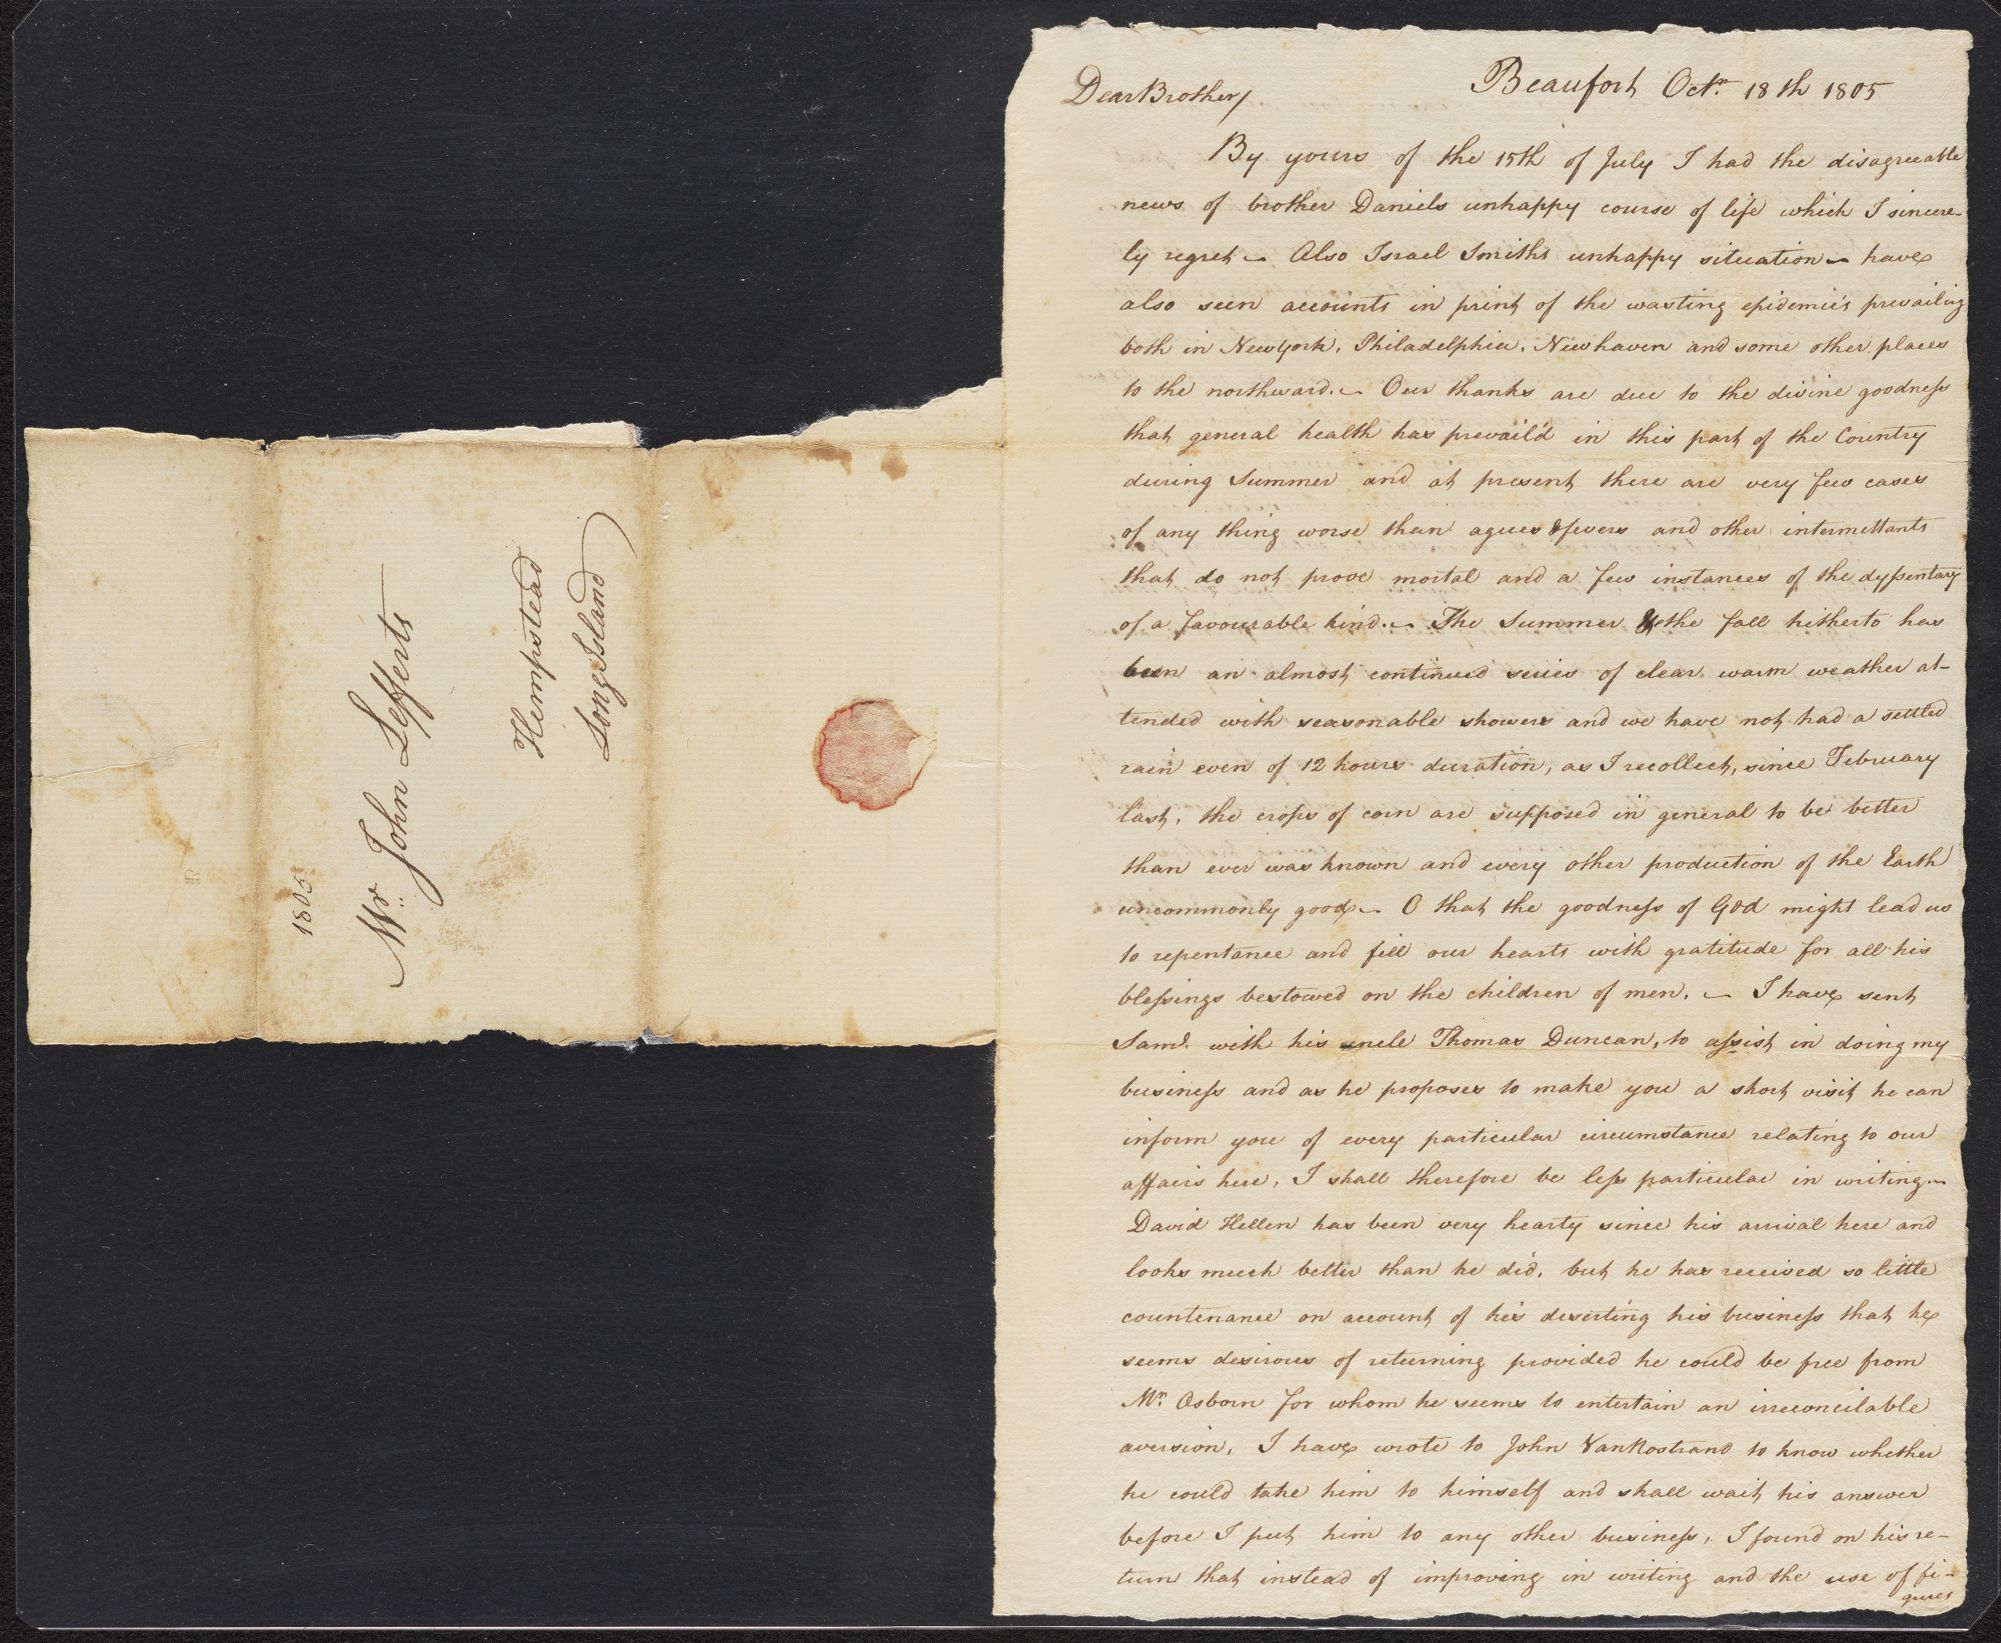 1805
Mr. John Lefferts
Hempstead
Long Island
Beaufort Octr. 18th 1805
Dear Brother,
By yours of the 15th of July I had the disagreeable
news of brother Daniels unhappy course of life which I sincere-
ly regret – Also Israel Smiths unhappy situation – have
also seen accounts in print of the wasting epidemics prevailing
both in New York, Philadelphia, Newhaven and some other places
to the northward. – Our thanks are due to the divine goodness
that general health has prevail'd in this part of the Country
during Summer and at present there are very few cases
of any thing worse than agues & fevers and other intermettants
that do not prove mortal and a few instances of the dyssentary
of a favourable kind. – The Summer & the fall hitherto has
been an almost continued series of clear warm weather at-
tended with seasonable showers and we have not had a settled
rain even of 12 hours duration, as I recollect, since February
last, the crops of corn are supposed in general to be better
than ever was known and every other production of the Earth
uncommonly good – O that the goodness of God might lead us
to repentance and fill our hearts with gratitude for all his
blessings bestowed on the children of men. – I have sent
Saml. with his uncle Thomas Duncan, to assist in doing my
business and as he proposes to make you a short visit he can
inform you of every particular circumstance relating to our
affairs here, I shall therefore be less particular in writing –
David Hellen has been very hearty since his arrival here and
looks much better than he did, but he has received so little
countenance on account of his deserting his business that he
seems desirous of returning provided he could be free from
Mr. Osborn for whom he seems to entertain an irreconcilable
aversion, I have wrote to John VanNostrand to know whether
he could take him to himself and shall wait his answer
before I put him to any other business, I found on his re-
turn that instead of improving in writing and the use of fi-
gures